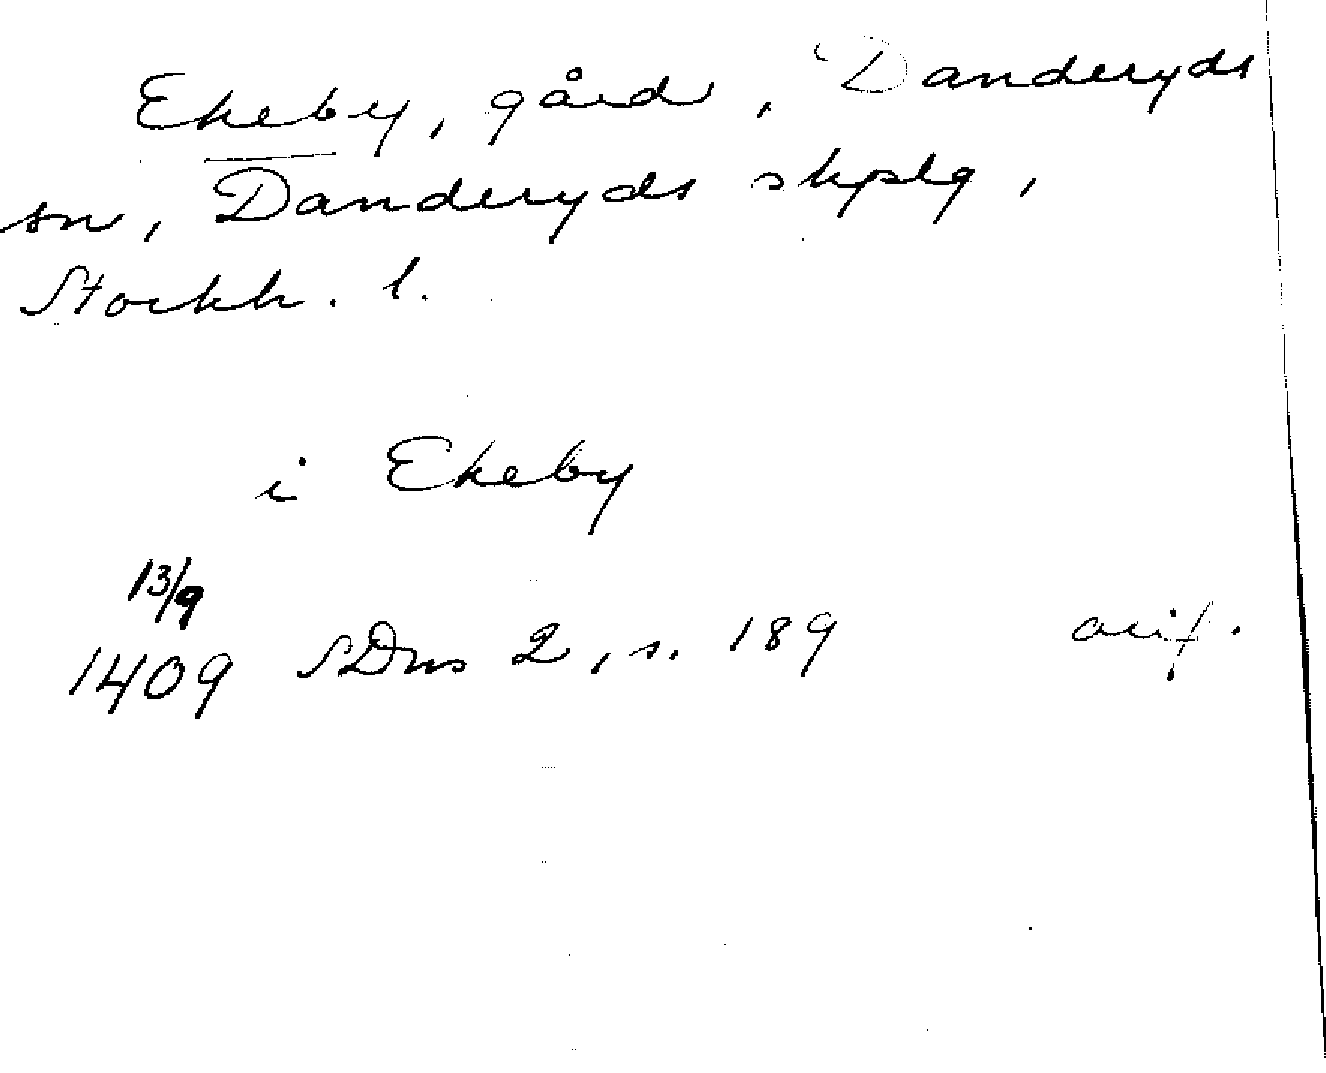 Ekeby, gård, Danderyds
sn, Danderyds skplg,
Stockh. l.
i Ekeby
13/9
1409 SDns 2, s. 189 avif.